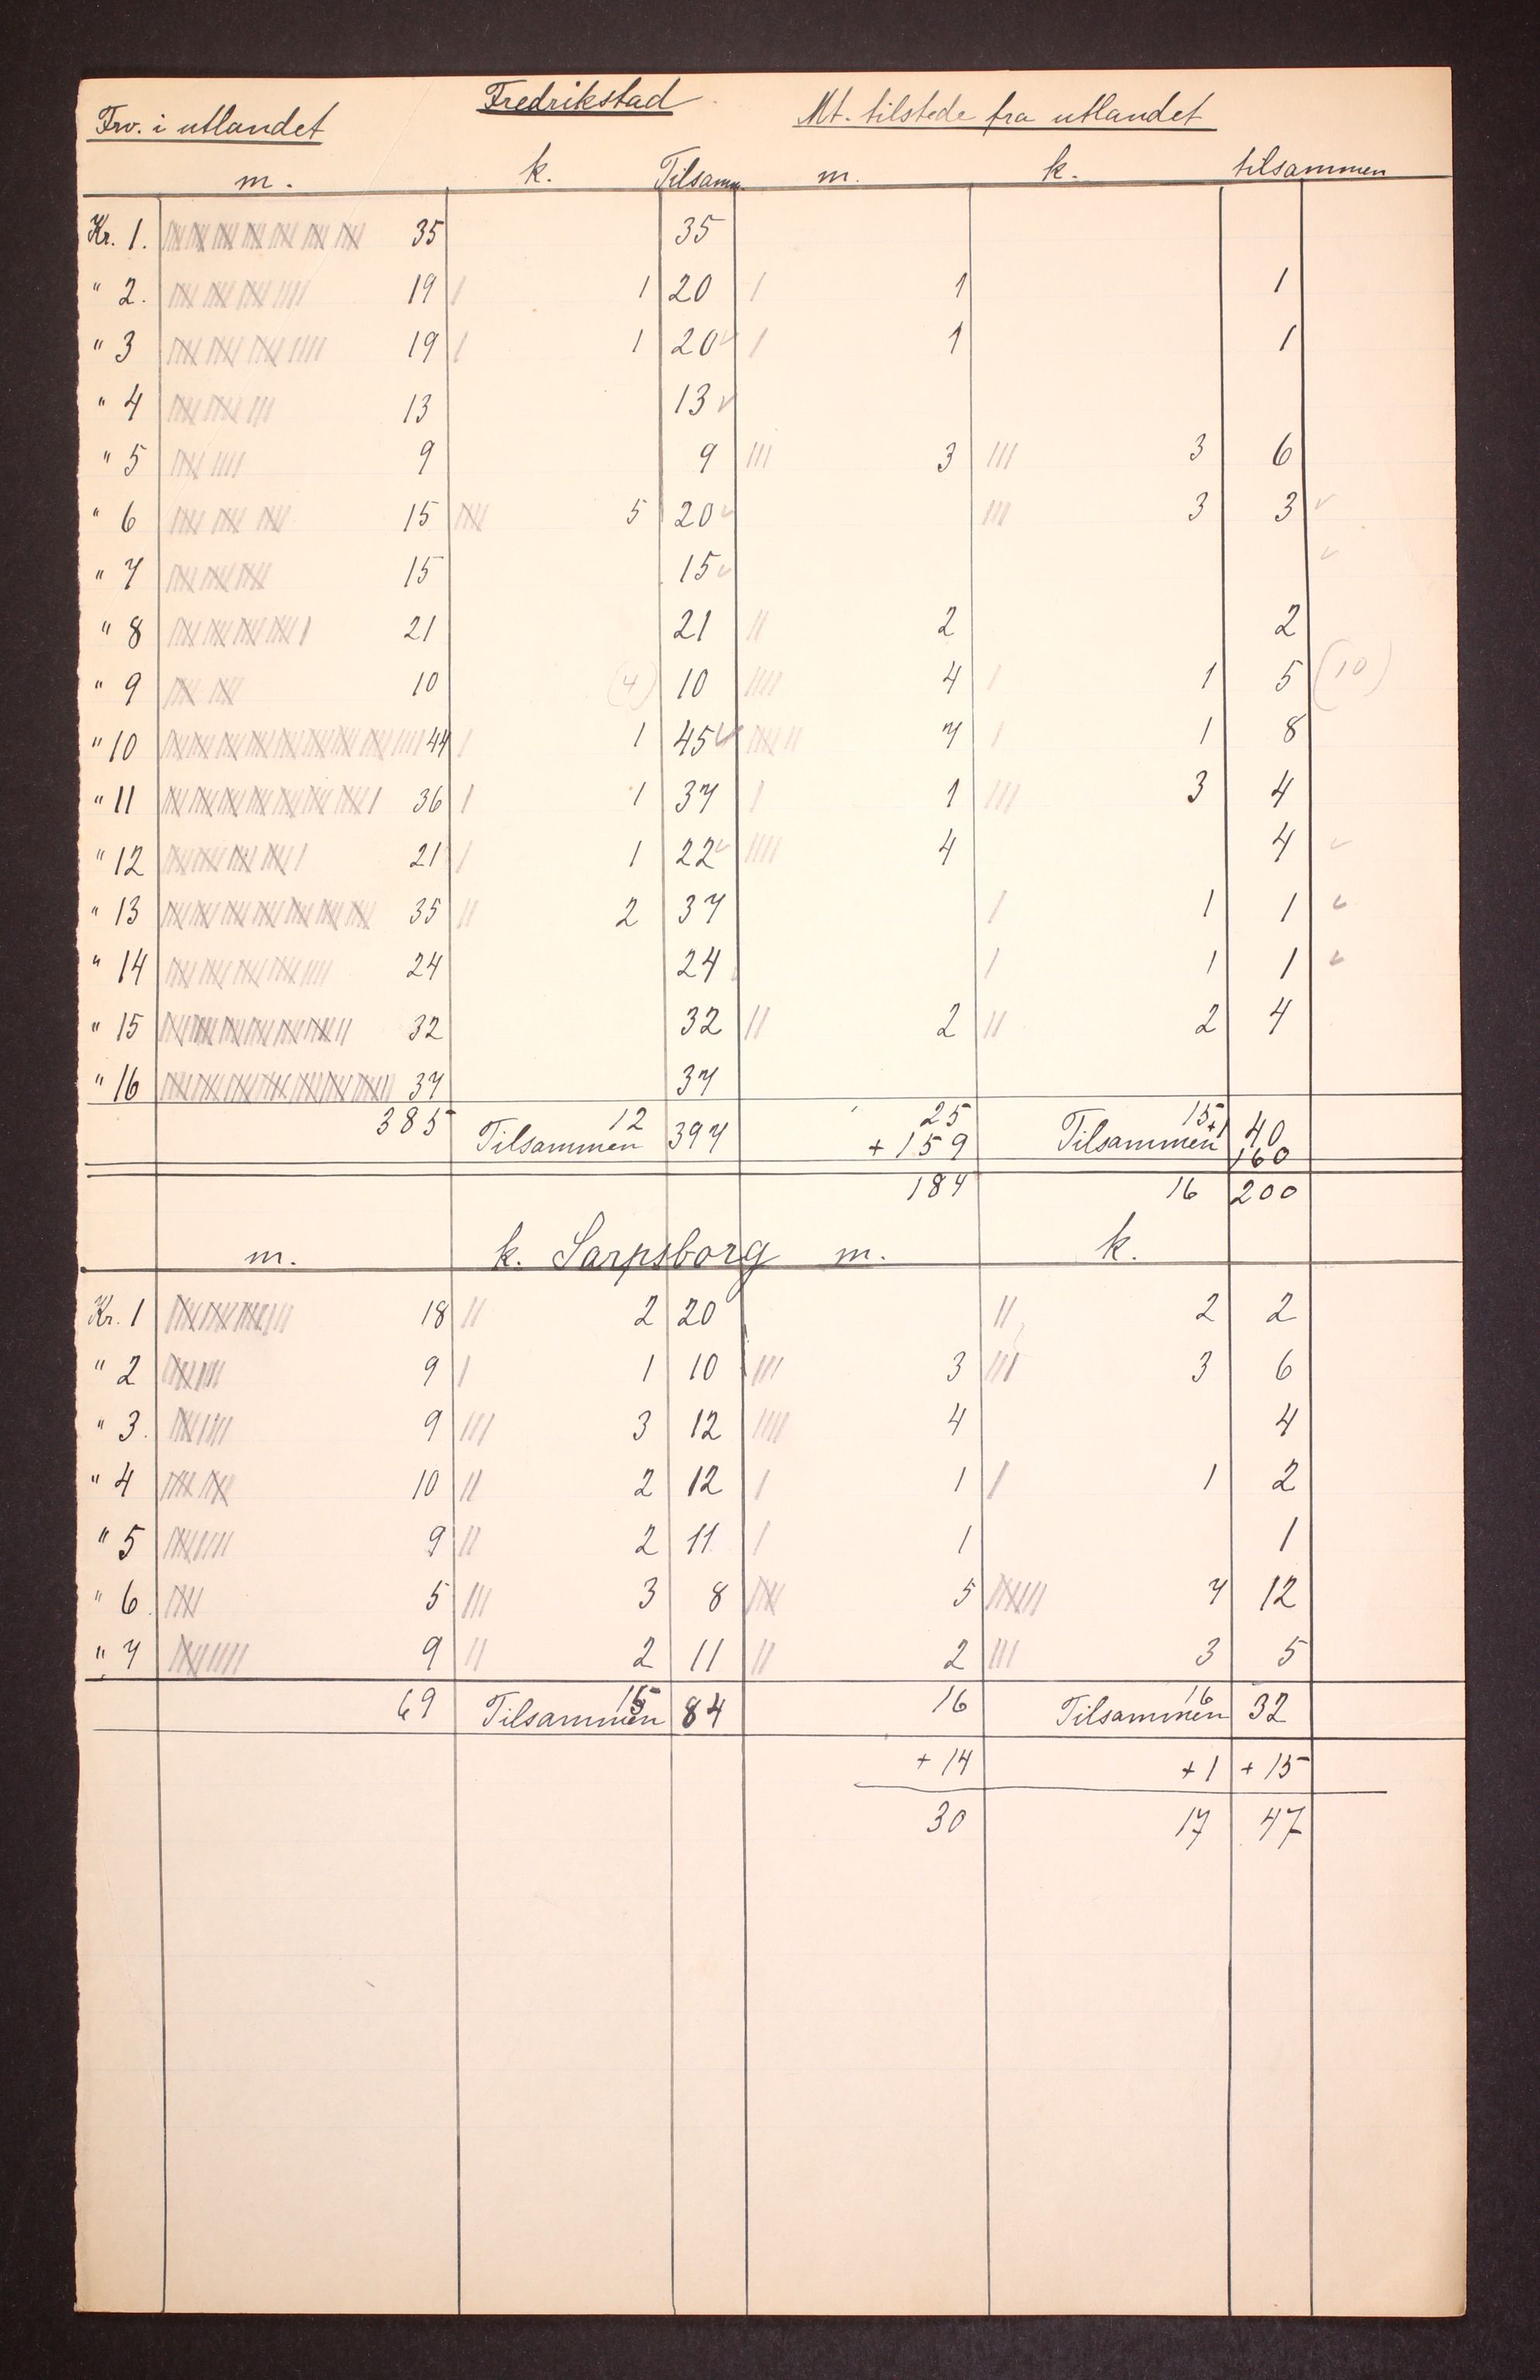 Fredrikstad
Frv. i utlandet Mt. tilstede fra utlandet
m. k. Tilsamm. m. k. tilsammen
Kr. 1. 35 35
" 2. 19 1 20 1 1
" 3 19 1 20 1 1
" 4 13 13
" 5 9 9 3 3 6
" 6 15 5 20 3 3
" 7 15 15
" 8 21 21 2 2
" 9 10 (4) 10 4 1 5 (10)
" 10 44 1 45 7 1 8
" 11 36 1 37 1 3 4
" 12 21 1 22 4 4
" 13 35 2 37 1 1
" 14 24 24 1 1
" 15 32 32 2 2 4
" 16 37 37
385 Tilsammen 12 397 25 Tilsammen 15 40
+ 159 +1 160
184 16 200
m. k. Sarpsborg m. k.
Kr. 1 18 2 20 2 2
" 2 9 1 10 3 3 6
" 3. 9 3 12 4 4
" 4 10 2 12 1 1 2
" 5 9 2 11 1 1
" 6. 5 3 8 5 7 12
" 7 9 2 11 2 3 5
69 Tilsammen 15 84 16 Tilsammen 16 32
+ 14 + 1 + 15
30 17 47